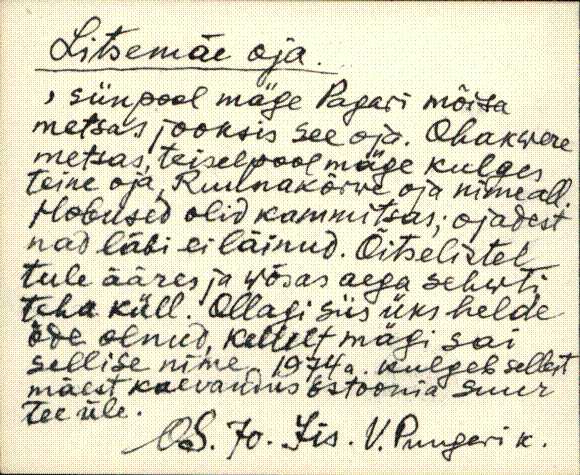 Litsemäe oja.
, siinpool mäge Pagari mõisa
metsas jooksis see oja. Ohakwere
metsas, teiselpool mäge kulges
teine oja, Ruulnakõrwe oja nime all.
Hobused olid kammitsas, ojadest
nad läbi ei läinud. Õitselistel
tule ääres ja wõsas aega sehwti
teha küll. Ollagi siis üks helde
öde olnud, kellelt mägi sai
sellise nime. 1974 a. kulgeb sellest
mäest kaevandus Estoonia suur
tee üle.
OS. Jo. Iis. V. Pungeri k.